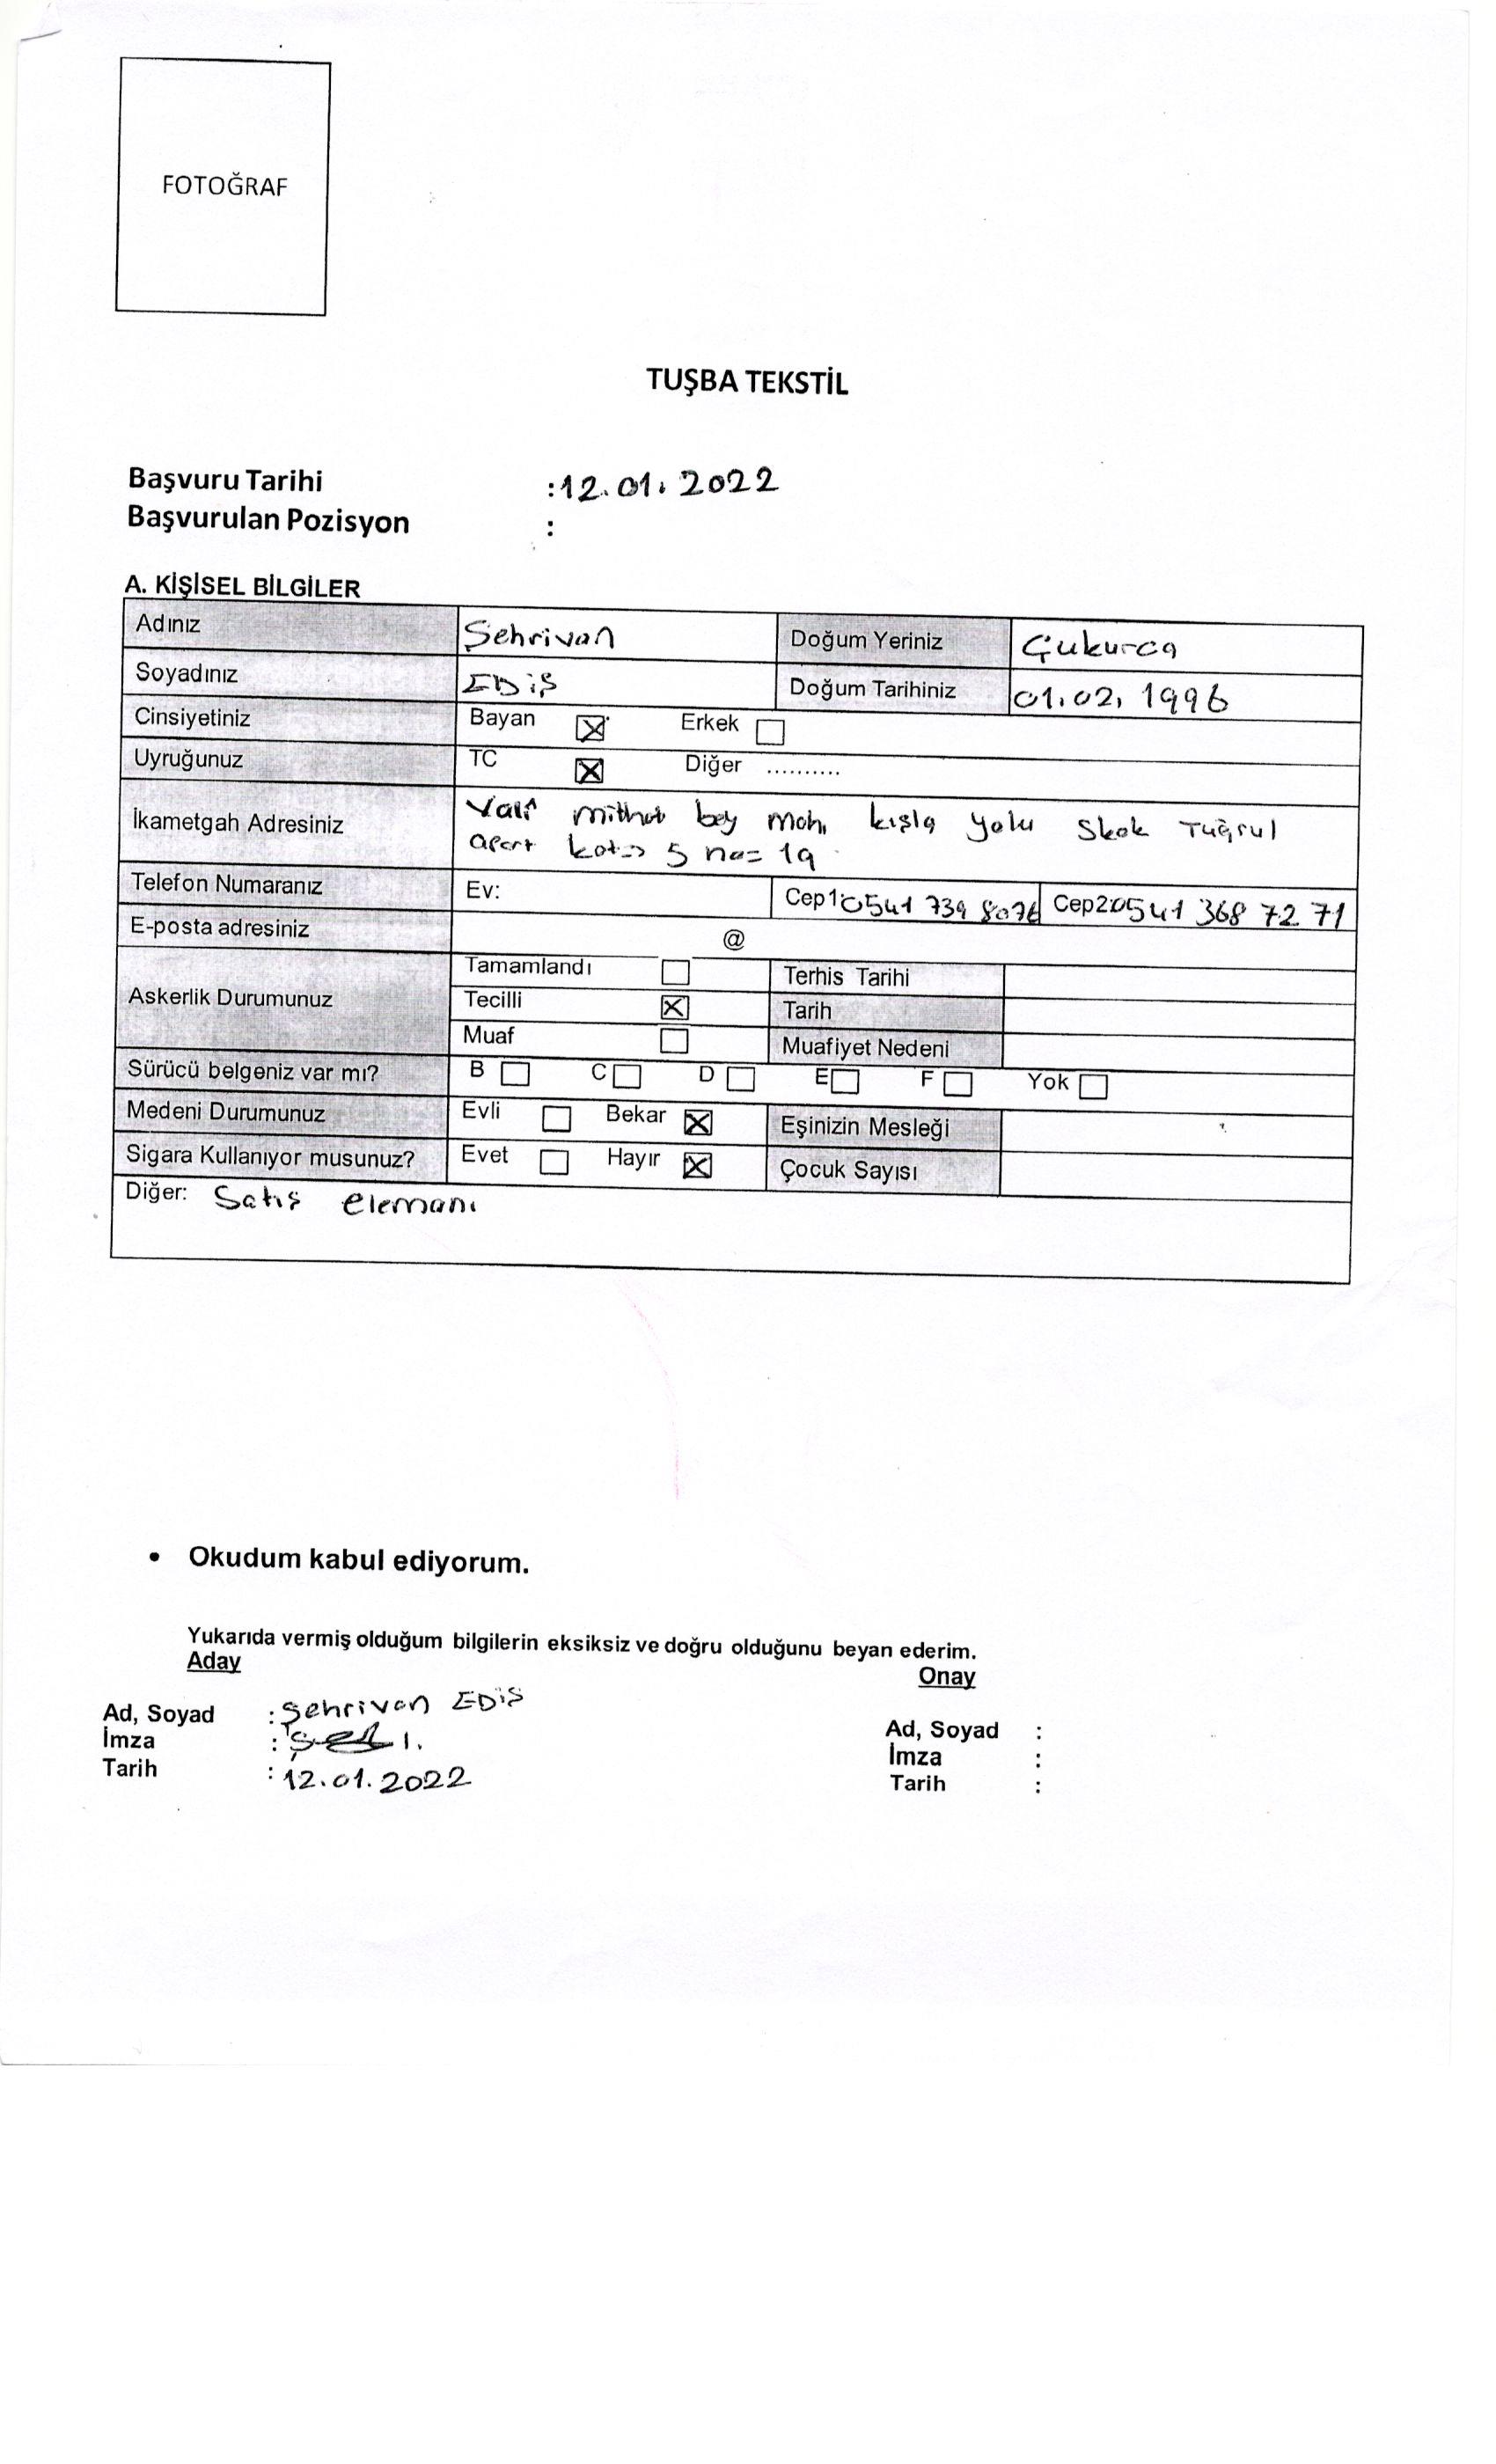 FOTOĞRAF
TUŞBA TEKSTİL
Başvuru Tarihi :12.01.2022
Başvurulan Pozisyon :
A. KİŞİSEL BİLGİLER
Adınız Şehrivan Doğum Yeriniz Çukurca
Soyadınız EDİŞ Doğum Tarihiniz 01.02.1996
Cinsiyetiniz Bayan ☒ Erkek ☐
Uyruğunuz TC ☒ Diğer ..........
İkametgah Adresiniz Vali mithat bey mah. kışla yolu Skak Tuğrul
apart kat=> 5 no= 19
Telefon Numaranız Ev: Cep1 0541 739 8076 Cep2 0541 368 72 71
E-posta adresiniz @
Askerlik Durumunuz Tamamlandı ☐ Terhis Tarihi
Tecilli ☒ Tarih
Muaf ☐ Muafiyet Nedeni
Sürücü belgeniz var mı? B ☐ C ☐ D ☐ E ☐ F ☐ Yok ☐
Medeni Durumunuz Evli ☐ Bekar ☒ Eşinizin Mesleği
Sigara Kullanıyor musunuz? Evet ☐ Hayır ☒ Çocuk Sayısı
Diğer: Satış elemanı
• Okudum kabul ediyorum.
Yukarıda vermiş olduğum bilgilerin eksiksiz ve doğru olduğunu beyan ederim.
Aday Onay
Ad, Soyad : Şehrivan EDİŞ Ad, Soyad :
İmza : İmza :
Tarih : 12.01.2022 Tarih :